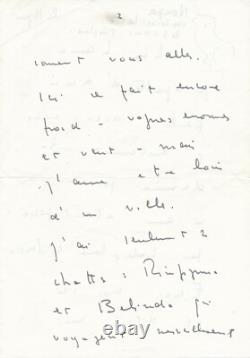 2
comment vous allez.
Ici il fait encore
froid - vagues enormes
et vent - mais
j'aime etre loin
d'un ville.
j'ai seulement 2
chatts :
et Belinda qui
voyagent